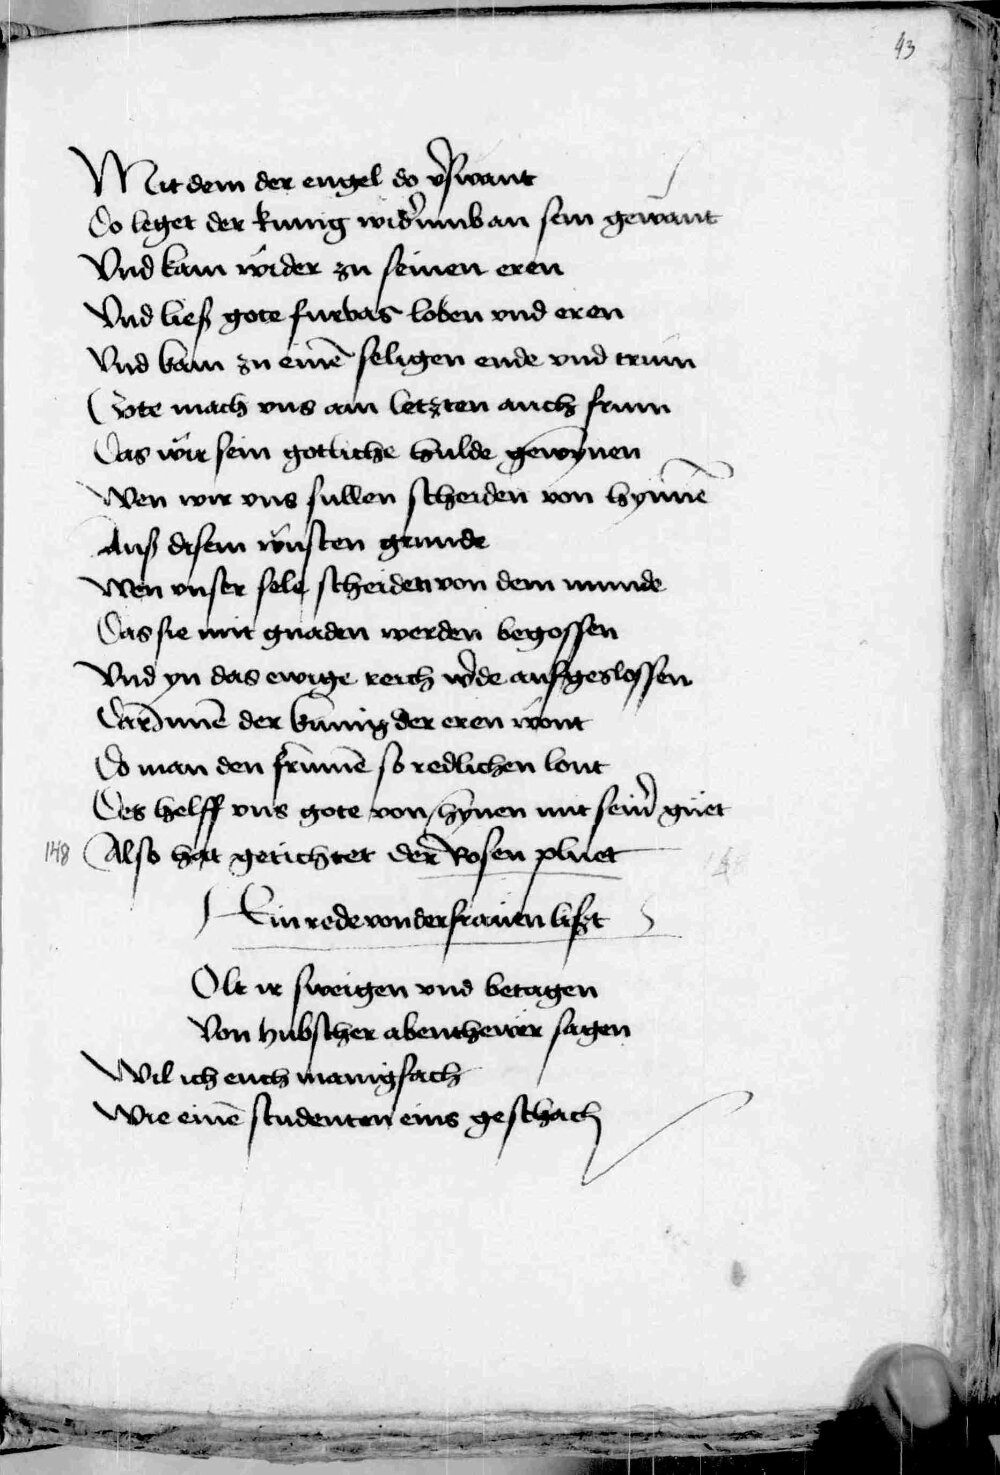 43
Mit dem der engel do v̾swant
Do leget der kunig wid̾umb an sein gewant
Vnd kam wider zu seinen eren
Vnd ließ gote furbas loben vnd eren
Vnd kam zu eine͂ seligen ende vnd trum
Gote mach vns am letzten auch frum
Das wir sein gotliche hulde gewynen
Wen wir vns sullen scheiden von hynne͂
Auß disem wusten grunde
Wen vnser sele scheiden von dem munde
Das sie mit gnaden werden begossen
Vnd yn das ewige reich w̾de aufgeslossen
Dar Inne͂ der kunig der eren wont
Do man den frume͂ so redlichen lont
Des helff vns gote von hynen mit sein̾ guet
148 Also hat getichtet der Rosen pluet
Ein rede von der frauen lißt
Olt ir sweigen vnd betagen
Von hubscher abenthewer sagen
Wil ich euch manigfach
Wie eine͂ studenten eins geschach